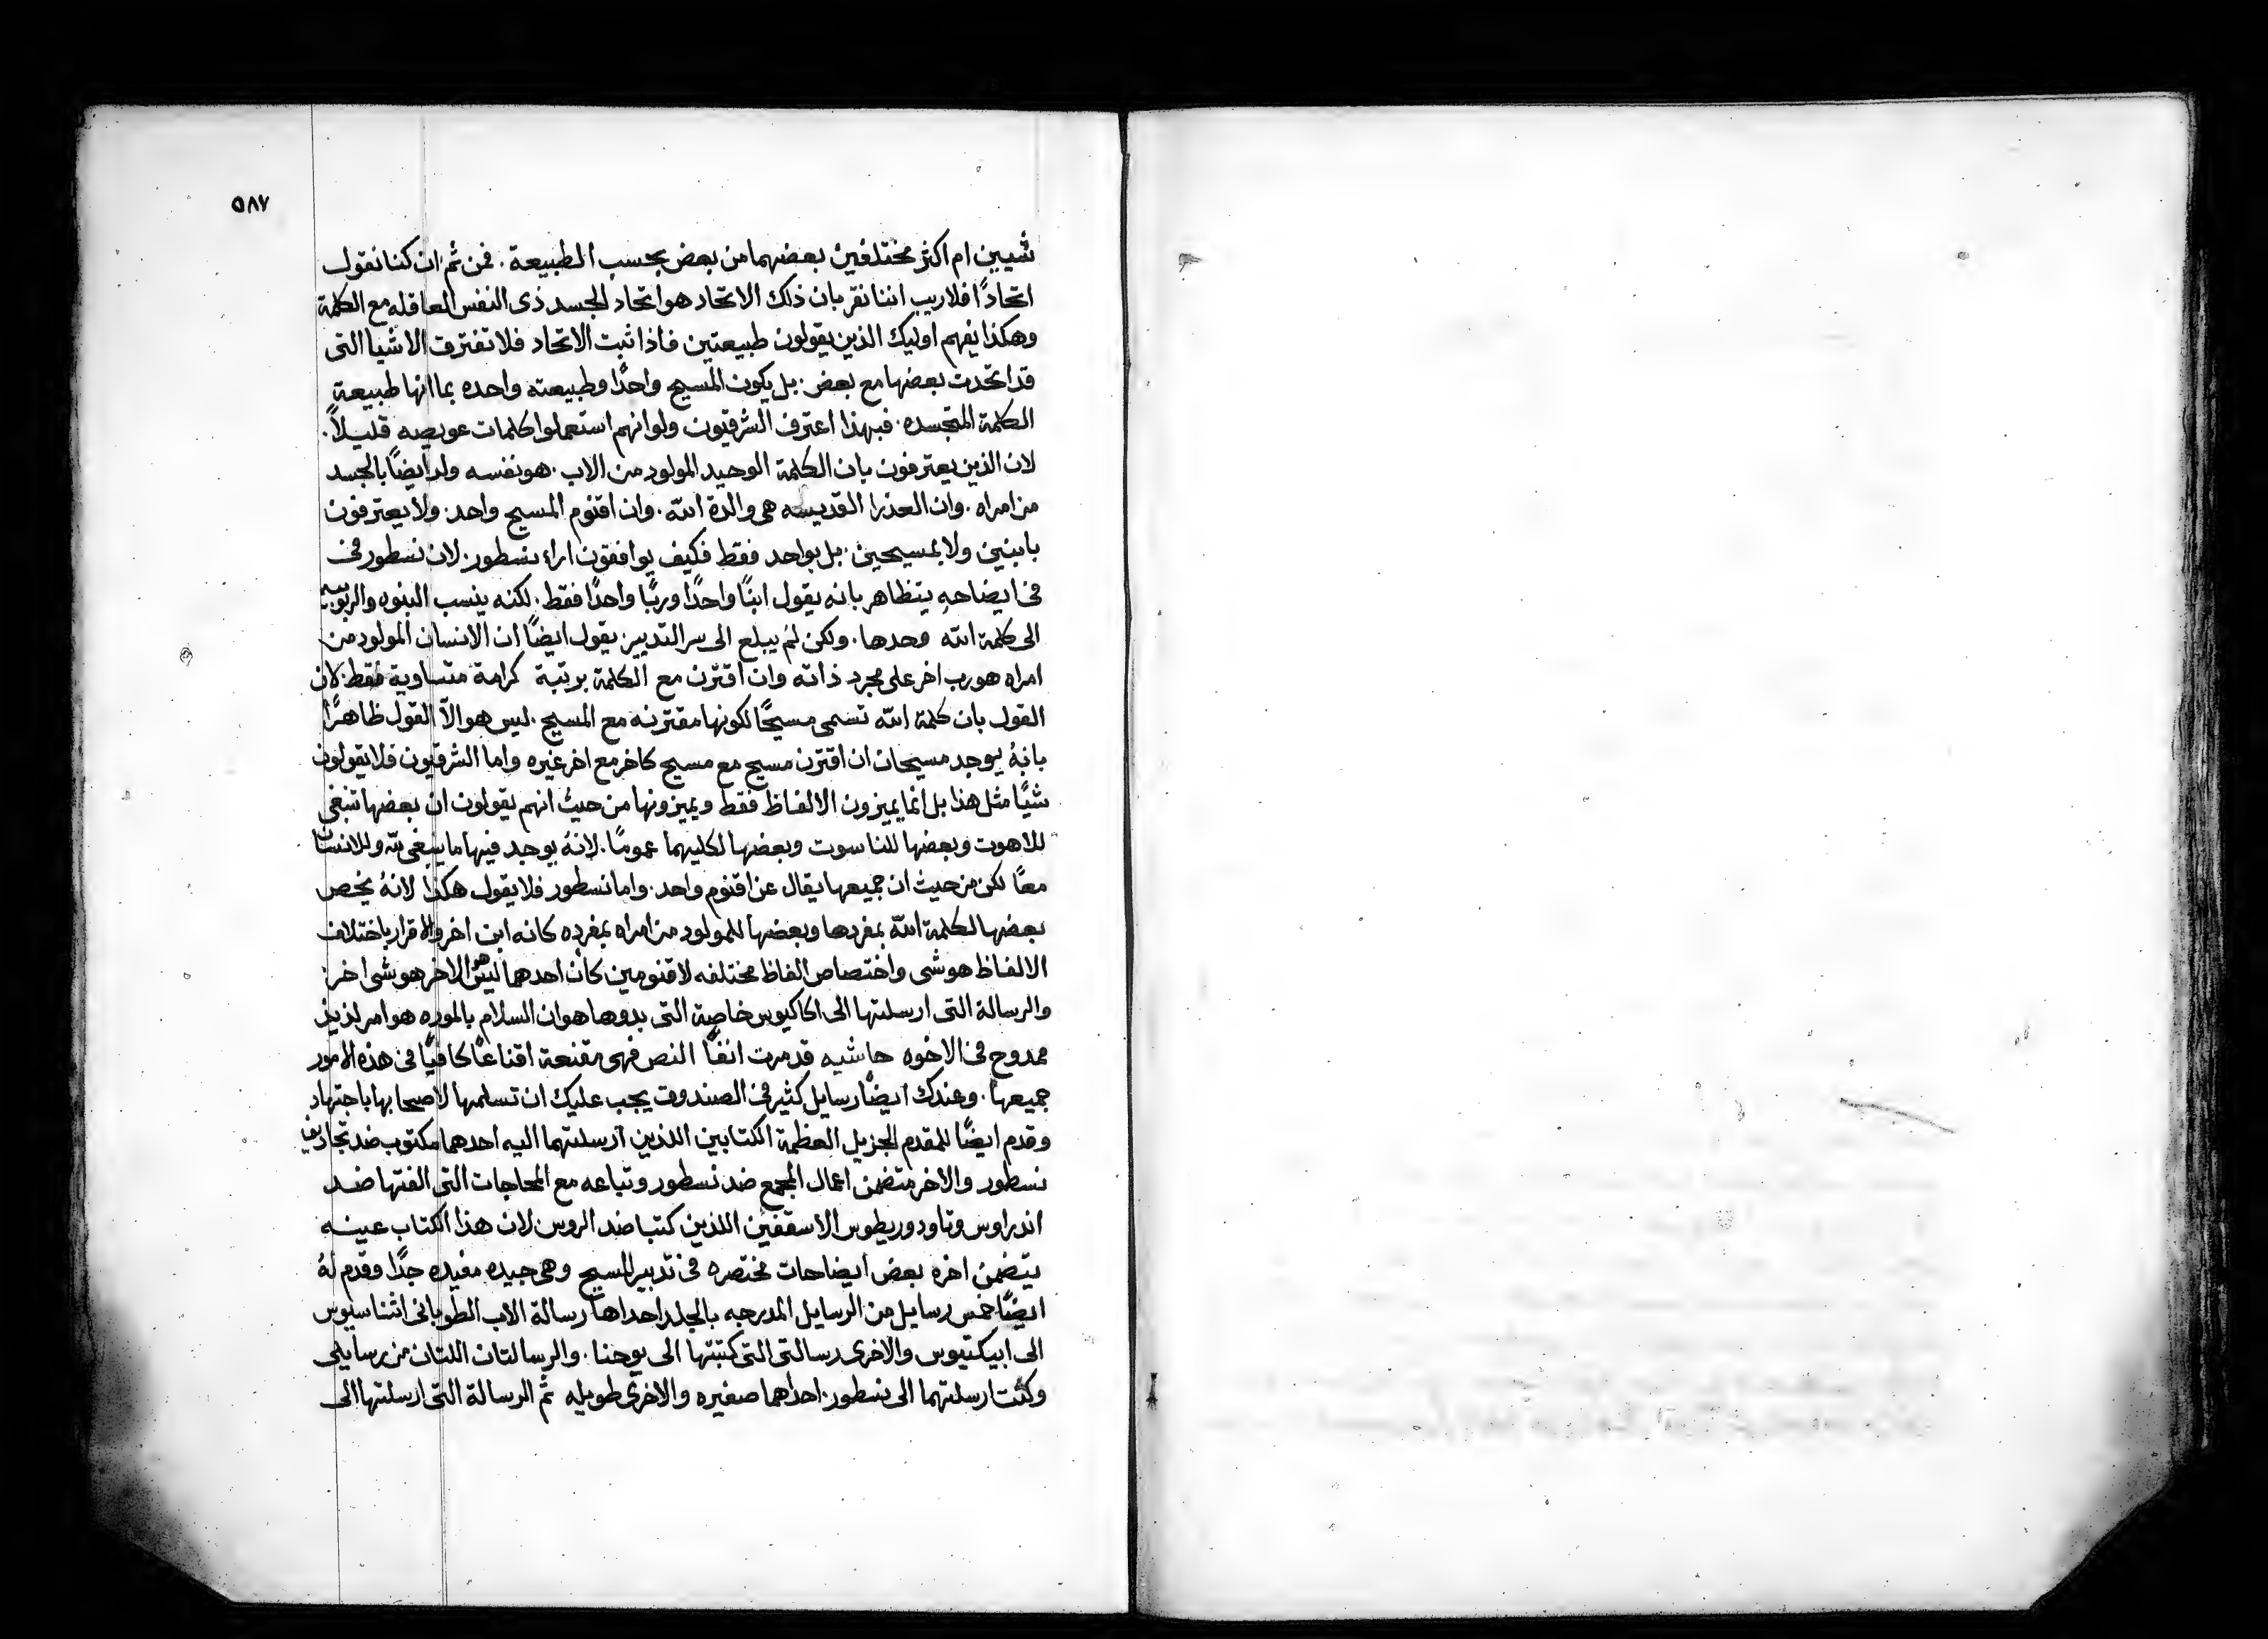 ٥٨٧
شيين ام اكثر مختلفين بعضهما من بعض بحسب الطبيعة . فمن ثم ان كنا نقول
اتحادًا فلاريب اننا نقر بان ذلك الاتحاد هو اتحاد الجسد ذى النفس العاقله مع الكلمة
وهكذا يفهم اوليك الذين يقولون طبيعتين فاذا ثبت الاتحاد فلا تفترق الاشيا التى
قد اتحدت بعضها مع بعض . بل يكون المسيح واحدًا وطبيعته واحده بما انها طبيعة
الكلمة المتجسده . فبهذا اعترف الشرقيون ولو انهم استعملوا كلمات عويصه قليلاً .
لان الذين يعترفون بان الكلمة الوحيد المولود من الاب . هو نفسه ولد ايضًا بالجسد
من امراه . وان العذرا القديسه هى والدة الله . وان اقنوم المسيح واحد . ولا يعترفون
بابنين ولا بمسيحين . بل بواحد فقط فكيف يوافقون اراء نسطور . لان نسطور فى
فى ايضاحهِ يتظاهر بانه يقول ابنًا واحدًا وربًا واحدًا فقط . لكنه ينسب البنوه والربوبيه
الى كلمة الله وحدها . ولكن لم يبلع الى سر التدبير يقول ايضًا ان الانسان المولود من
امراه هو رب اخر على مجرد ذاته وان اقترن مع الكلمة برتبة كرامة متساوية فقط . لان
القول بان كلمة الله تسمى مسيحًا لكونها مقترنه مع المسيح . ليس هو الاّ القول ظاهرًا
بانهُ يوجد مسيحان ان اقترن مسيح مع مسيح كاخر مع اخر غيره واما الشرقيون فلا يقولون
شيًا مثل هذا بل انما يميزون الالفاظ فقط ويميزونها من حيث انهم يقولون ان بعضها تنبغى
للاهوت وبعضها للناسوت وبعضها لكليهما عمومًا . لانهُ يوجد فيها ما ينبغى لله وللانسان
معًا لكن من حيث ان جميعها يقال عن اقنوم واحد . واما نسطور فلا يقول هكذا لانهُ يخص
بعضها لكلمة الله بمفردها وبعضها للمولود من امراه بمفرده كانه ابن اخر والاقرار باختلاف
الالفاظ هو شى واختصاص الفاظ مختلفه لاقنومين كأن احدهما ليس هو الاخر هو شى اخر .
والرسالة التى ارسلتها الى اكاكيوس خاصة التى بدوها هو ان السلام بالموره هو امر لذيذ
ممدوح فى الاخوه حاشيه قد مرت انفًا النص فهى مقنعة اقناعًا كافيًا فى هذه الامور
جميعها . وعندك ايضًا رسايل كثير فى الصندوق يجب عليك ان تسلمها لاصحابها باجتهاد
وقدم ايضًا للمقدم الجزيل العظمة الكتابين اللذين ارسلتهما اليه احدهما مكتوب ضد تجاديف
نسطور والاخر متضمن اعمال المجمع ضد نسطور وتباعه مع المحاجات التى الفتها ضد
اندراوس وتاودوريطوس الاسقفين اللذين كتبا ضد الروس لان هذا الكتاب عينه
يتضمن اخره بعض ايضاحات مختصره فى تدبير المسيح وهى جيده مفيده جدًا وقدم لهُ
ايضًا خمس رسايل من الرسايل المدرجه بالجلد احداها رسالة الاب الطوبانى اثناسيوس
الى ابيكتيوس والاخرى رسالتى التى كتبتها الى يوحنا . والرسالتان اللتان من رسايلى
وكنت ارسلتهما الى نسطور . احداهما صغيره والاخرى طويله ثم الرسالة التى ارسلتها الى